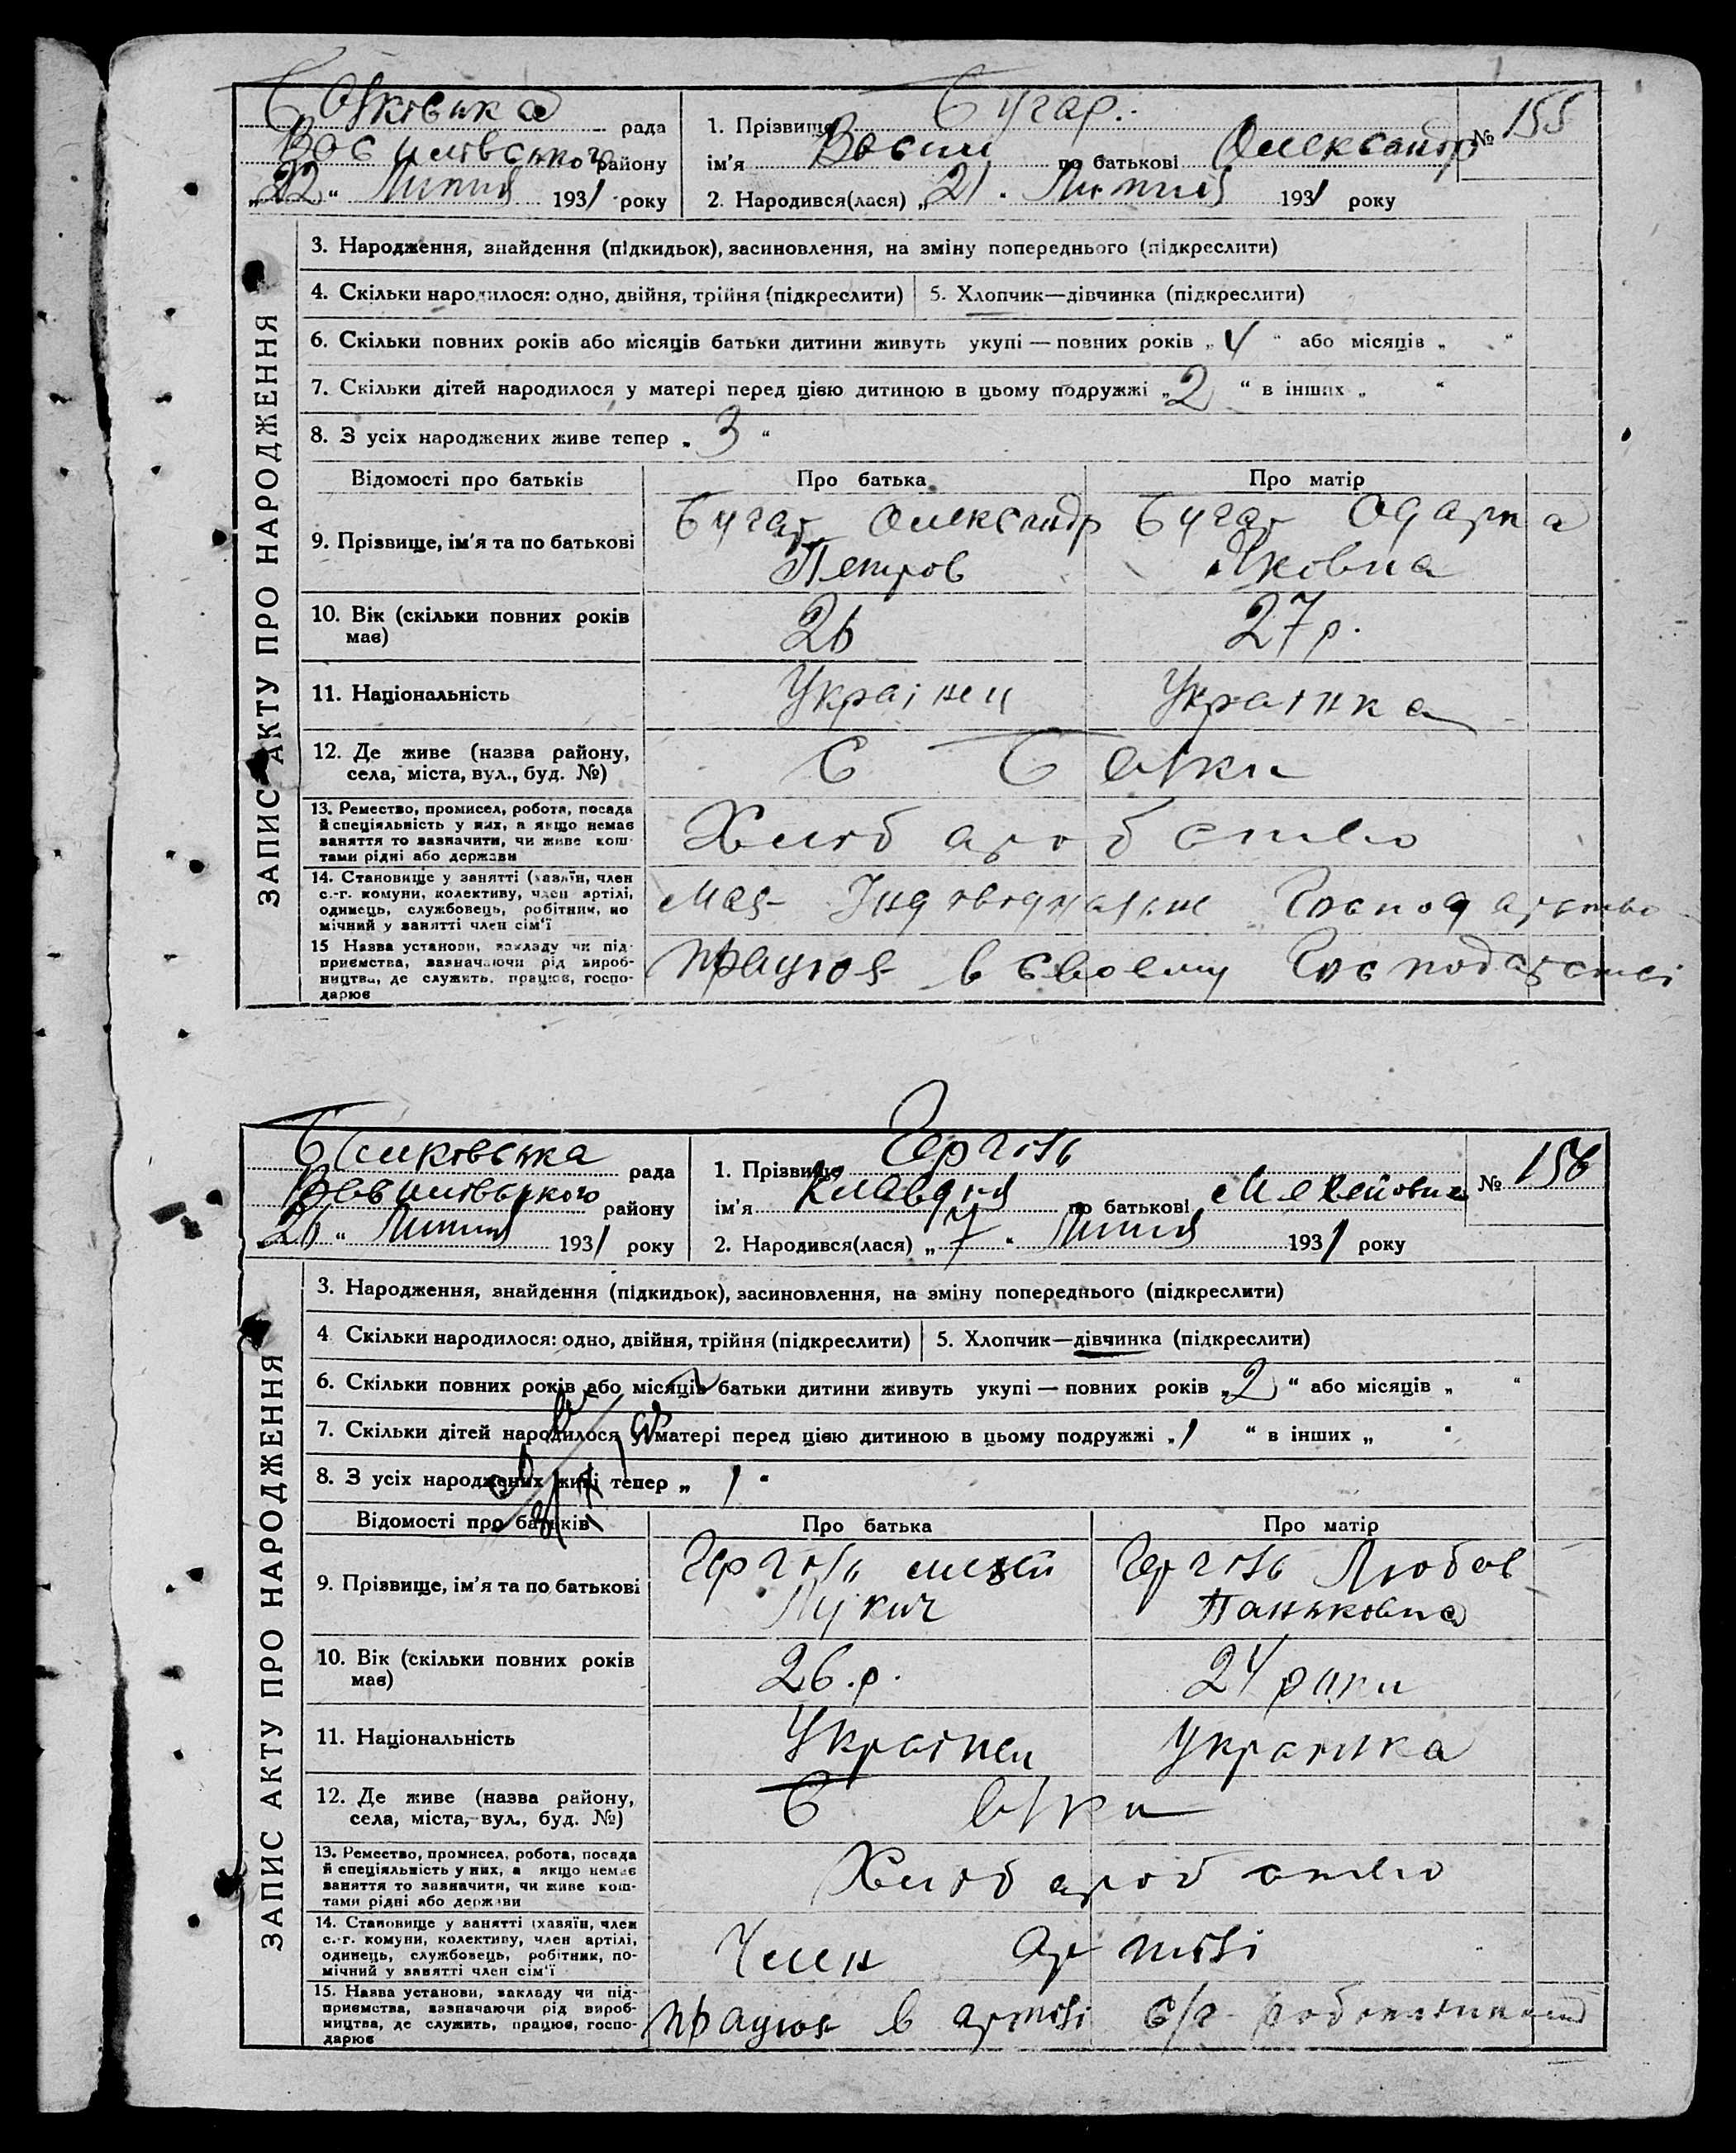 рада
району
„22“ Липня 1931 року
1. Прізвище Бугар.
ім'я по батькові Олександр
№ 155
2. Народився(лася) „21“ Липня 1931 року
ЗАПИС АКТУ ПРО НАРОДЖЕННЯ
3. Народження, знайдення (підкидьок), засиновлення, на зміну попереднього (підкреслити)
4. Скільки народилося: одно, двійня, трійня (підкреслити)
5. Хлопчик—дівчинка (підкреслити)
6. Скільки повних років або місяців батьки дитини живуть укупі — повних років „4“ або місяців „ “
7. Скільки дітей народилося у матері перед цією дитиною в цьому подружжі „2“ в інших „ “
8. З усіх народжених живе тепер „3“
Відомості про батьків
Про батька
Про матір
9. Прізвище, ім'я та по батькові
Бугар Олександр
Петров
Бугар Одарка
Яковна
10. Вік (скільки повних років
має)
26
27 р.
11. Національність
Українец
Українка
12. Де живе (назва району,
села, міста, вул., буд. №)
С Балки
13. Ремество, промисел, робота, посада
й спеціяльність у них, а якщо немає
заняття то зазначити, чи живе кош-
тами рідні або держави
Хліборобство
14. Становище у занятті (хазяїн, член
с.-г. комуни, колективу, член артілі,
одинець, службовець, робітник, по
мічний у занятті член сім'ї
має Індивідуальне Господарство
15 Назва установи, закладу чи під-
приємства, зазначаючи рід вироб-
ництва, де служить, працює, госпо-
дарює
працює в своєму Господарстві
рада
району
26 “ Липня 1931 року
1. Прізвище
ім'я Клавдія по батькові
№ 156
2. Народився(лася) „7“ Липня 1931 року
ЗАПИС АКТУ ПРО НАРОДЖЕННЯ
3. Народження, знайдення (підкидьок), засиновлення, на зміну попереднього (підкреслити)
4 Скільки народилося: одно, двійня, трійня (підкреслити)
5. Хлопчик—дівчинка (підкреслити)
6. Скільки повних років або місяців батьки дитини живуть укупі — повних років „2“ або місяців „ “
7. Скільки дітей народилося у матері перед цією дитиною в цьому подружжі „1“ в інших „ “
8. З усіх народжених живі тепер „1“
Відомості про батьків
Про батька
Про матір
9. Прізвище, ім'я та по батькові
Лукич
Любов
Паньковна
10. Вік (скільки повних років
має)
26.р.
24 роки
11. Національність
Українец
Українка
12. Де живе (назва району,
села, міста, вул., буд. №)
13. Ремество, промисел, робота, посада
й спеціяльність у них, а якщо немає
заняття то зазначити, чи живе кош-
тами рідні або держави
Хліборобство
14. Становище у занятті (хазяїн, член
с.-г. комуни, колективу, член артілі,
одинець, службовець, робітник, по-
мічний у занятті член сім'ї
Член артілі
15. Назва установи, закладу чи під-
приємства, зазначаючи рід вироб-
ництва, де служить, працює, госпо-
дарює
працює в артілі с/г